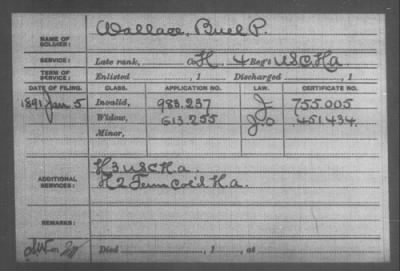 NAME OF SOLDIER: Wallace, Buel P.
SERVICE: Late rank, Co. H, 4 Reg't U.S.C.H.A.
TERM OF SERVICE: Enlisted , 1 Discharged , 1
DATE OF FILING. CLASS. APPLICATION NO. LAW. CERTIFICATE NO.
1891 Jan 5 Invalid, 983.237 J 755.005
Widow, 613.255 J.O 451434.
Minor,
ADDITIONAL SERVICES: H 3 U.S.C.H.A.
H 2 Tenn Col'd H.A.
REMARKS:
Died , 1 , at